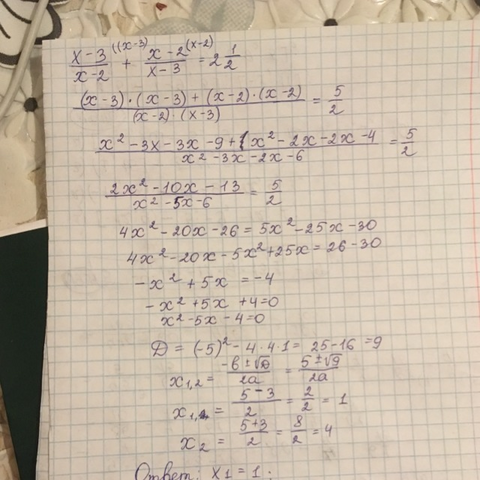 x-3/x-2 ((x-3) + x-2/x-3 (x-2) = 2 1/2
(x-3)·(x-3)+(x-2)·(x-2)/(x-2)·(x-3) = 5/2
x²-3x-3x-9+x²-2x-2x-4/x²-3x-2x-6 = 5/2
2x²-10x-13/x²-5x-6 = 5/2
4x²-20x-26=5x²-25x-30
4x²-20x-5x²+25x=26-30
-x²+5x=-4
-x²+5x+4=0
x²-5x-4=0
D=(-5)²-4·4·1=25-16=9
x1,2=-b±√D/2a=5±√9/2a
x1=5-3/2=2/2=1
x2=5+3/2=8/2=4
Ответ: x1=1;